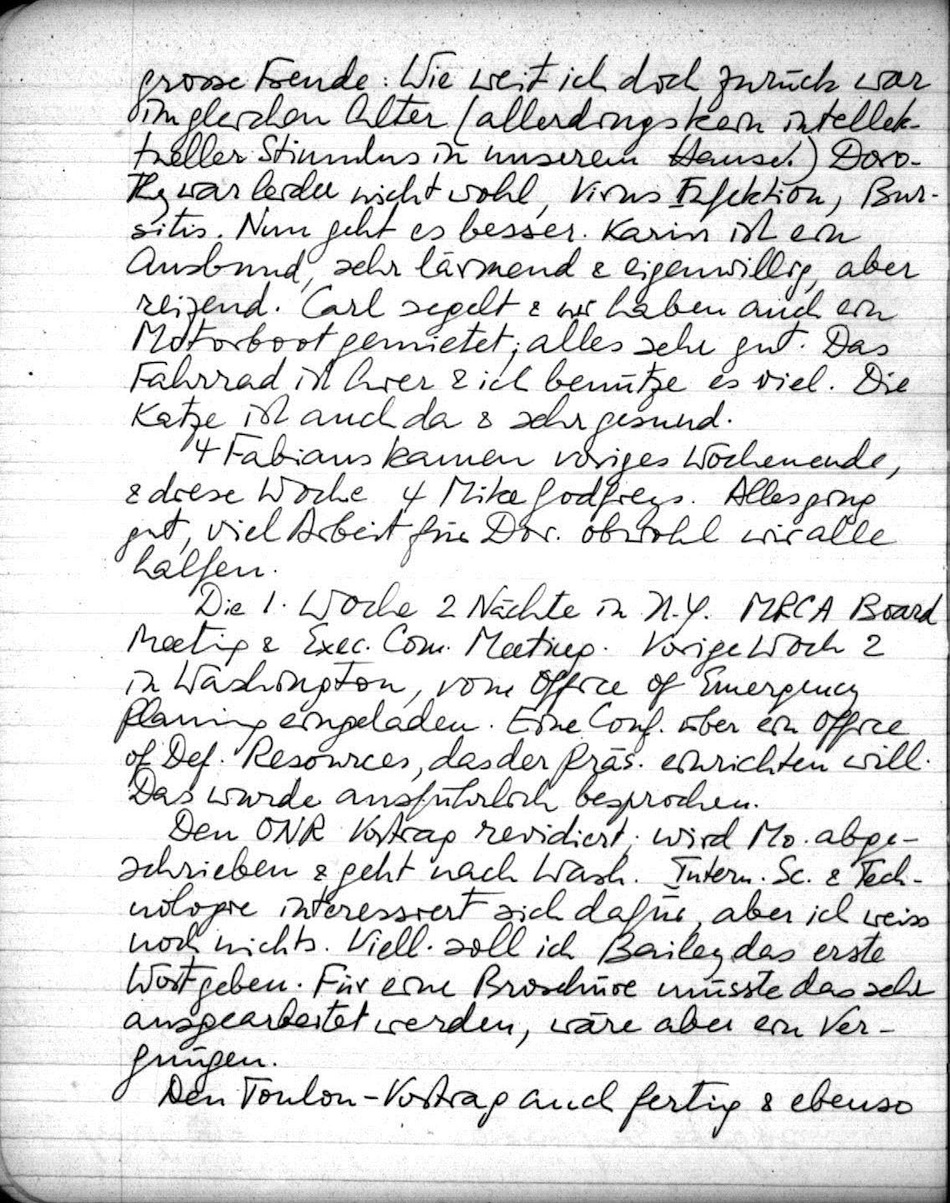 grosse Freude. Wie weit ich doch zurück war
im gleichen Alter (allerdings kein intellek-
tueller Stimulus in unserem Hause.) Doro-
thy war leider nicht wohl, Virus Infektion, Bur-
sitis. Nun geht es besser. Karin ist ein
Ausbund, sehr lärmend & eigenwillig, aber
reizend. Carl segelt & wir haben auch ein
Motorboot gemietet; alles sehr gut. Das
Fahrrad ist hier & ich benutze es viel. Die
Katze ist auch da & sehr gesund.
4 Fabians kamen voriges Wochenende,
& diese Woche 4 Mike Godfreys. Alles ging
gut, viel Arbeit für Dor. obwohl wir alle
halfen.
Die 1. Woche 2 Nächte in N.Y. MRCA Board
Meeting & Exec. Com. Meeting. Vorige Woch 2
in Washington, vom Office of Emergency
Planning eingeladen. Eine Conf. über ein Office
of Def. Resources, das der Präs. einrichten will.
Das wurde ausführlich besprochen.
Den ONR Vortrag revidiert; wird Mo. abge-
schrieben & geht nach Wash. Intern. Sc. & Tech-
nologie interessiert sich dafür, aber ich weiss
noch nichts. Viell. soll ich Bailey das erste
Wort geben. Für eine Broschüre müsste das sehr
ausgearbeitet werden, wäre aber ein Ver-
gnügen.
Den Toulon-Vortrag auch fertig & ebenso